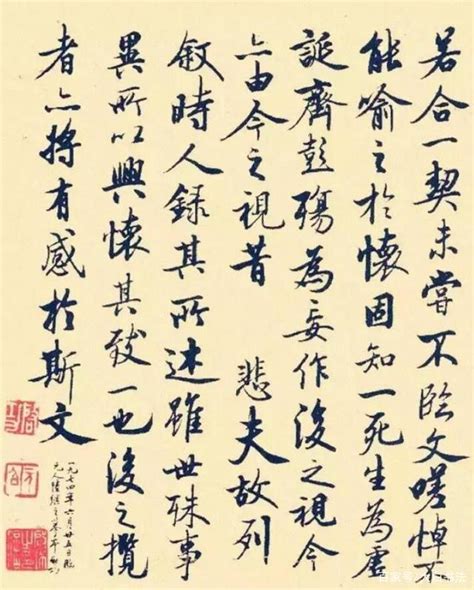 若合一契未嘗不臨文嗟悼不
能喻之於懷固知一死生為虛
誕齊彭殤為妄作後之視今
亦由今之視昔 悲夫故列
敘時人錄其所述雖世殊事
異所以興懷其致一也後之攬
者亦將有感於斯文
一九七四年六月廿五日臨
元人陸繼之摹本